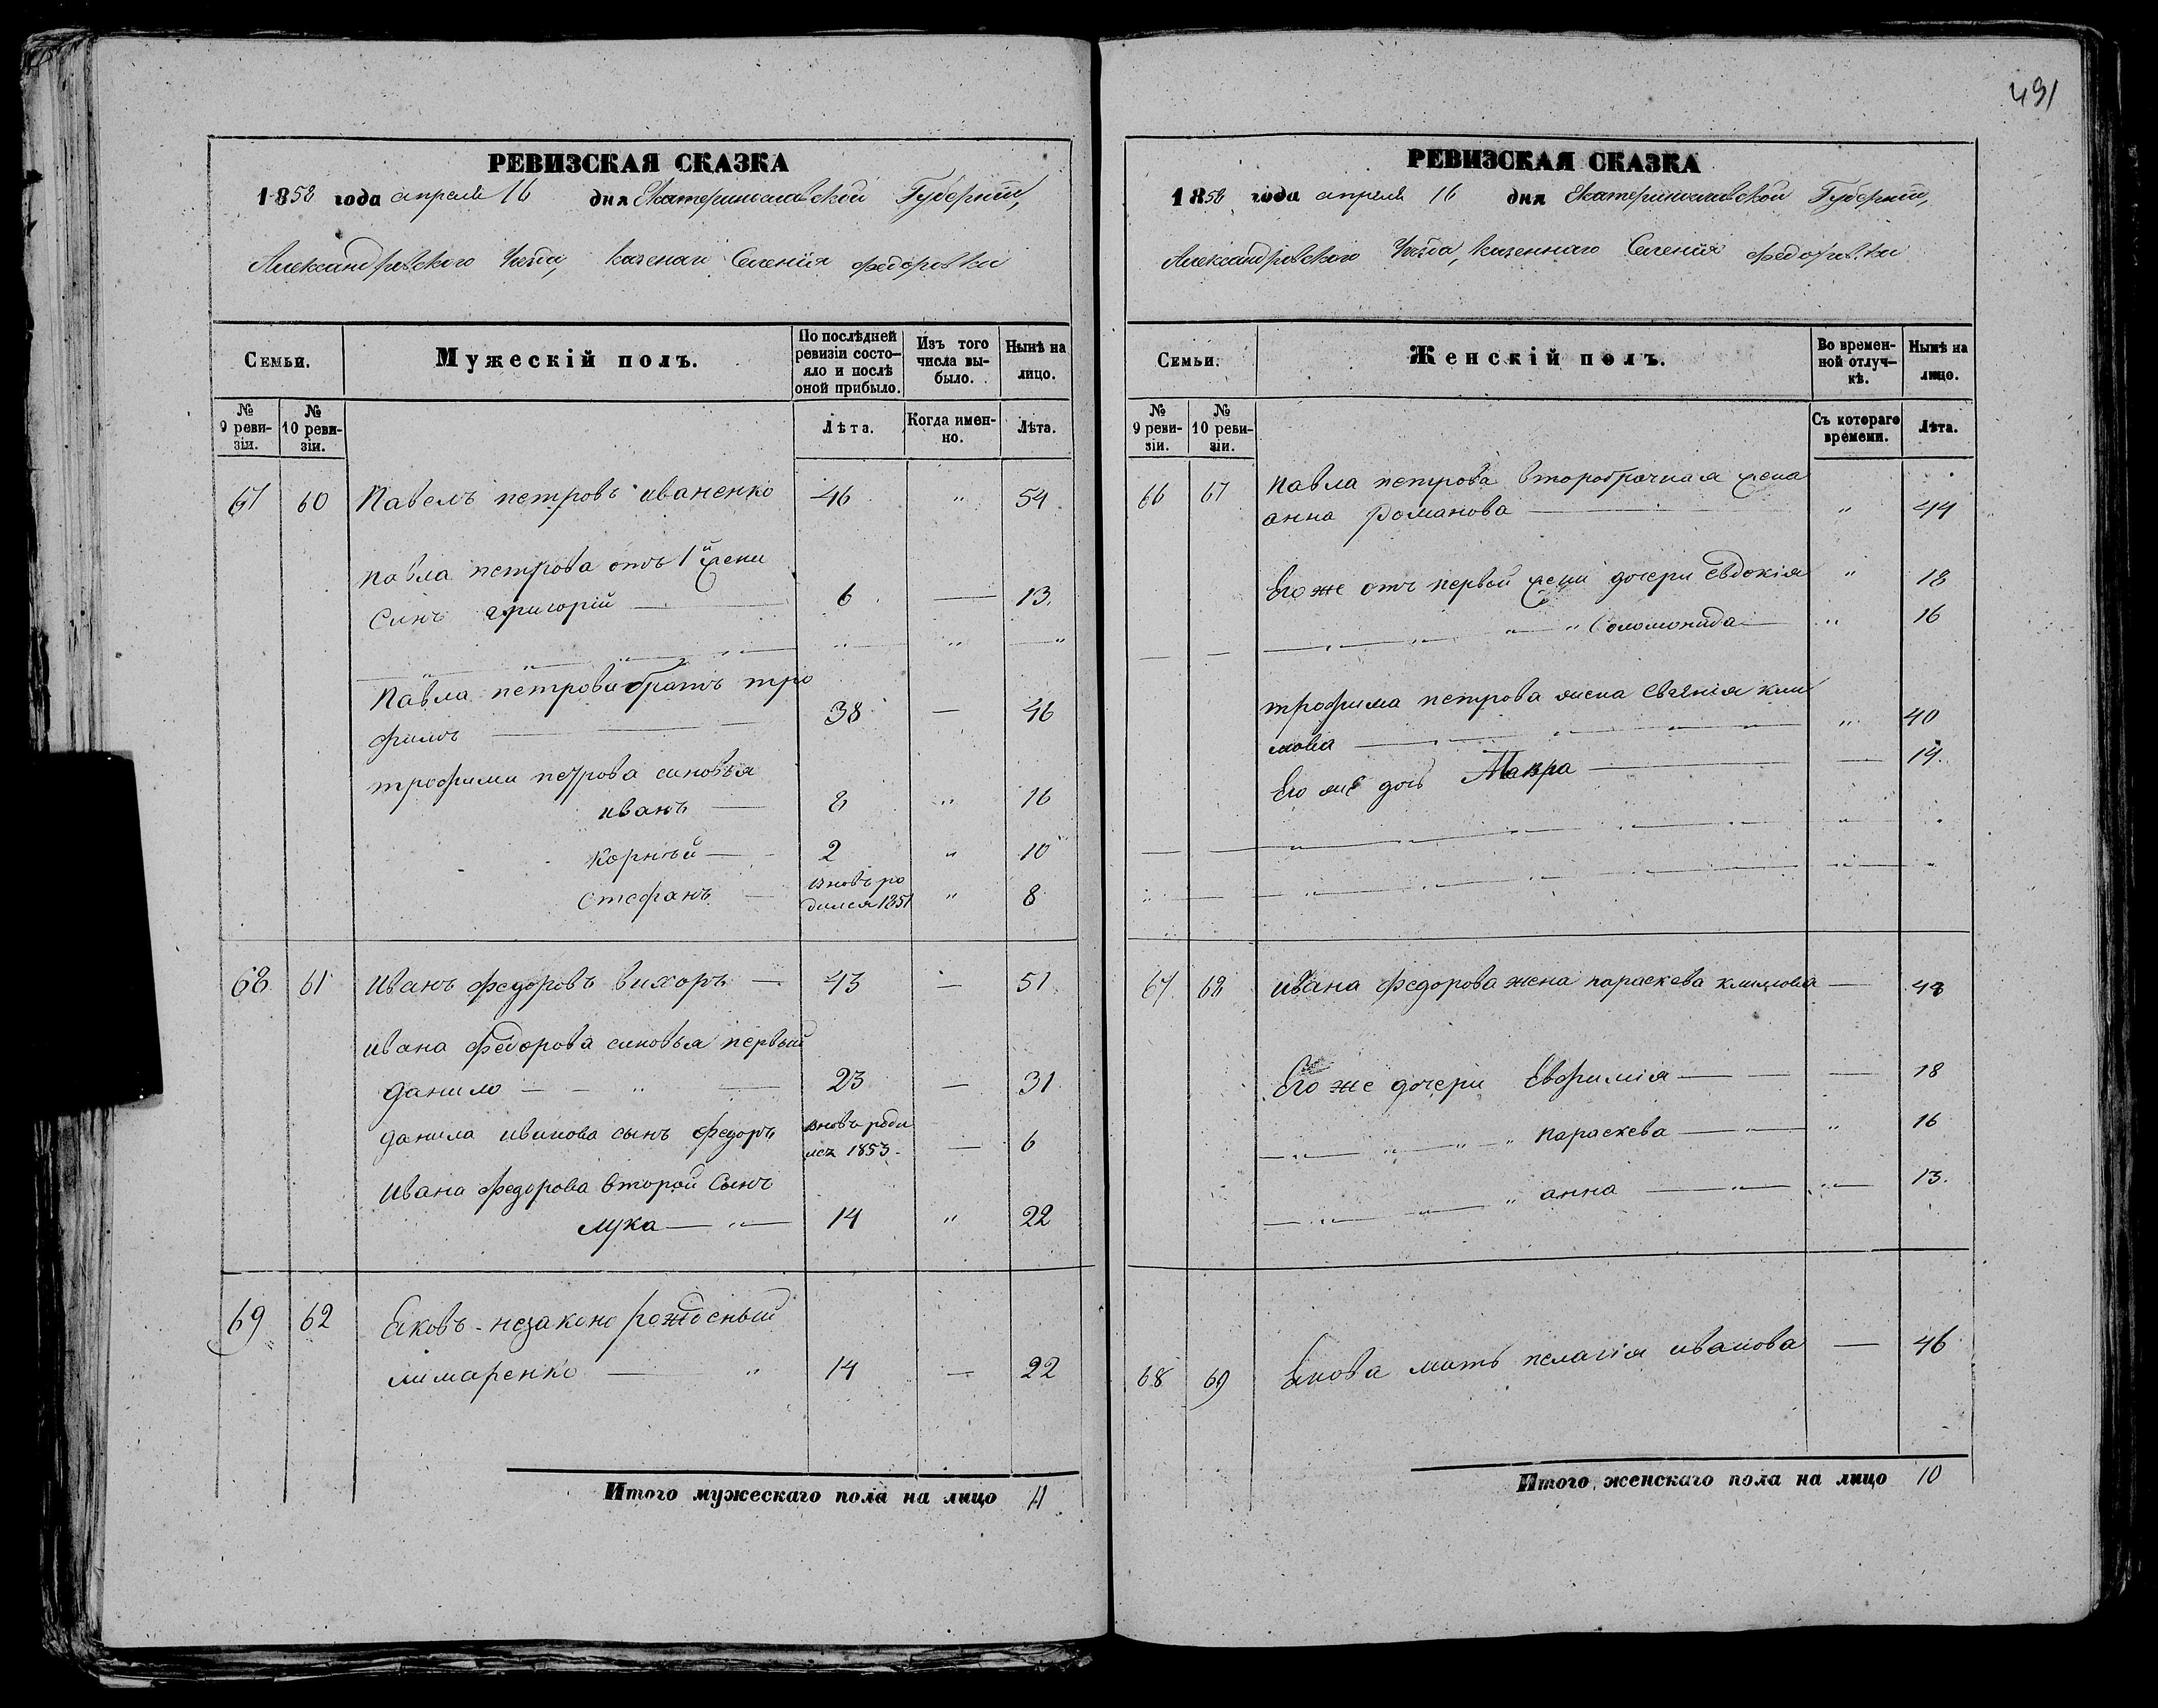 491
РЕВИЗСКАЯ СКАЗКА
1858 года апреля 16 дня Екатеринославской Губерніи,
Александровского Уезда, казенаго Селенія федоровки
Семьи.
Мужескій полъ.
По послѣдней ревизіи состо-
яло и послѣ оной прибыло.
Изъ того числа вы-
было.
Нынѣ на лицо.
№ 9 реви-
зіи.
№ 10 реви-
зіи.
Лѣта.
Когда имен-
но.
Лѣта.
67 60 Павелъ петровъ иваненко 46 " 54
павла петрова отъ 1й жени
Синъ григорій — 6 — 13.
Павла петрова братъ тро
фимъ — 38 — 46
трофима петрова синовья
иванъ — 8 " 16
корнѣй — 2 " 10
стефанъ — вновь ро
дился 1851 " 8
68 61 Иванъ федоровъ вихоръ — 43 — 51
ивана федорова синовья первый
данило — " — 23 — 31
данила иванова сынъ федоръ вновь роди
лся 1853 — 6
ивана федорова второй Сынъ
лука — " — 14 " 22
69 62 Яковъ незаконо рожденый
лимаренко — " 14 — 22
Итого мужескаго пола на лицо 11
РЕВИЗСКАЯ СКАЗКА
1858 года апреля 16 дня Екатеринославской Губерніи,
Александровского Уезда, казеннаго Селенія федоровки
Семьи.
Женскій полъ.
Во времен-
ной отлуч-
кѣ.
Нынѣ на лицо.
№ 9 реви-
зіи.
№ 10 реви-
зіи.
Съ котораго времени.
Лѣта.
66 67 павла петрова второбрачная жена
анна романова — " 44
Его же отъ первой жени дочери Евдокія " 18
" — " Соломонида — " 16
трофима петрова жена Евгенія кли
мова — " 40
Его же дочь Мавра — — 14.
67 68 ивана федорова жена параскева климова — 48
Его же дочери Евфимія — — 18
" " " параскева — " — " 16
" " " анна — " — " 13.
68 69 Якова мать пелагія иванова — 46
Итого женскаго пола на лицо 10